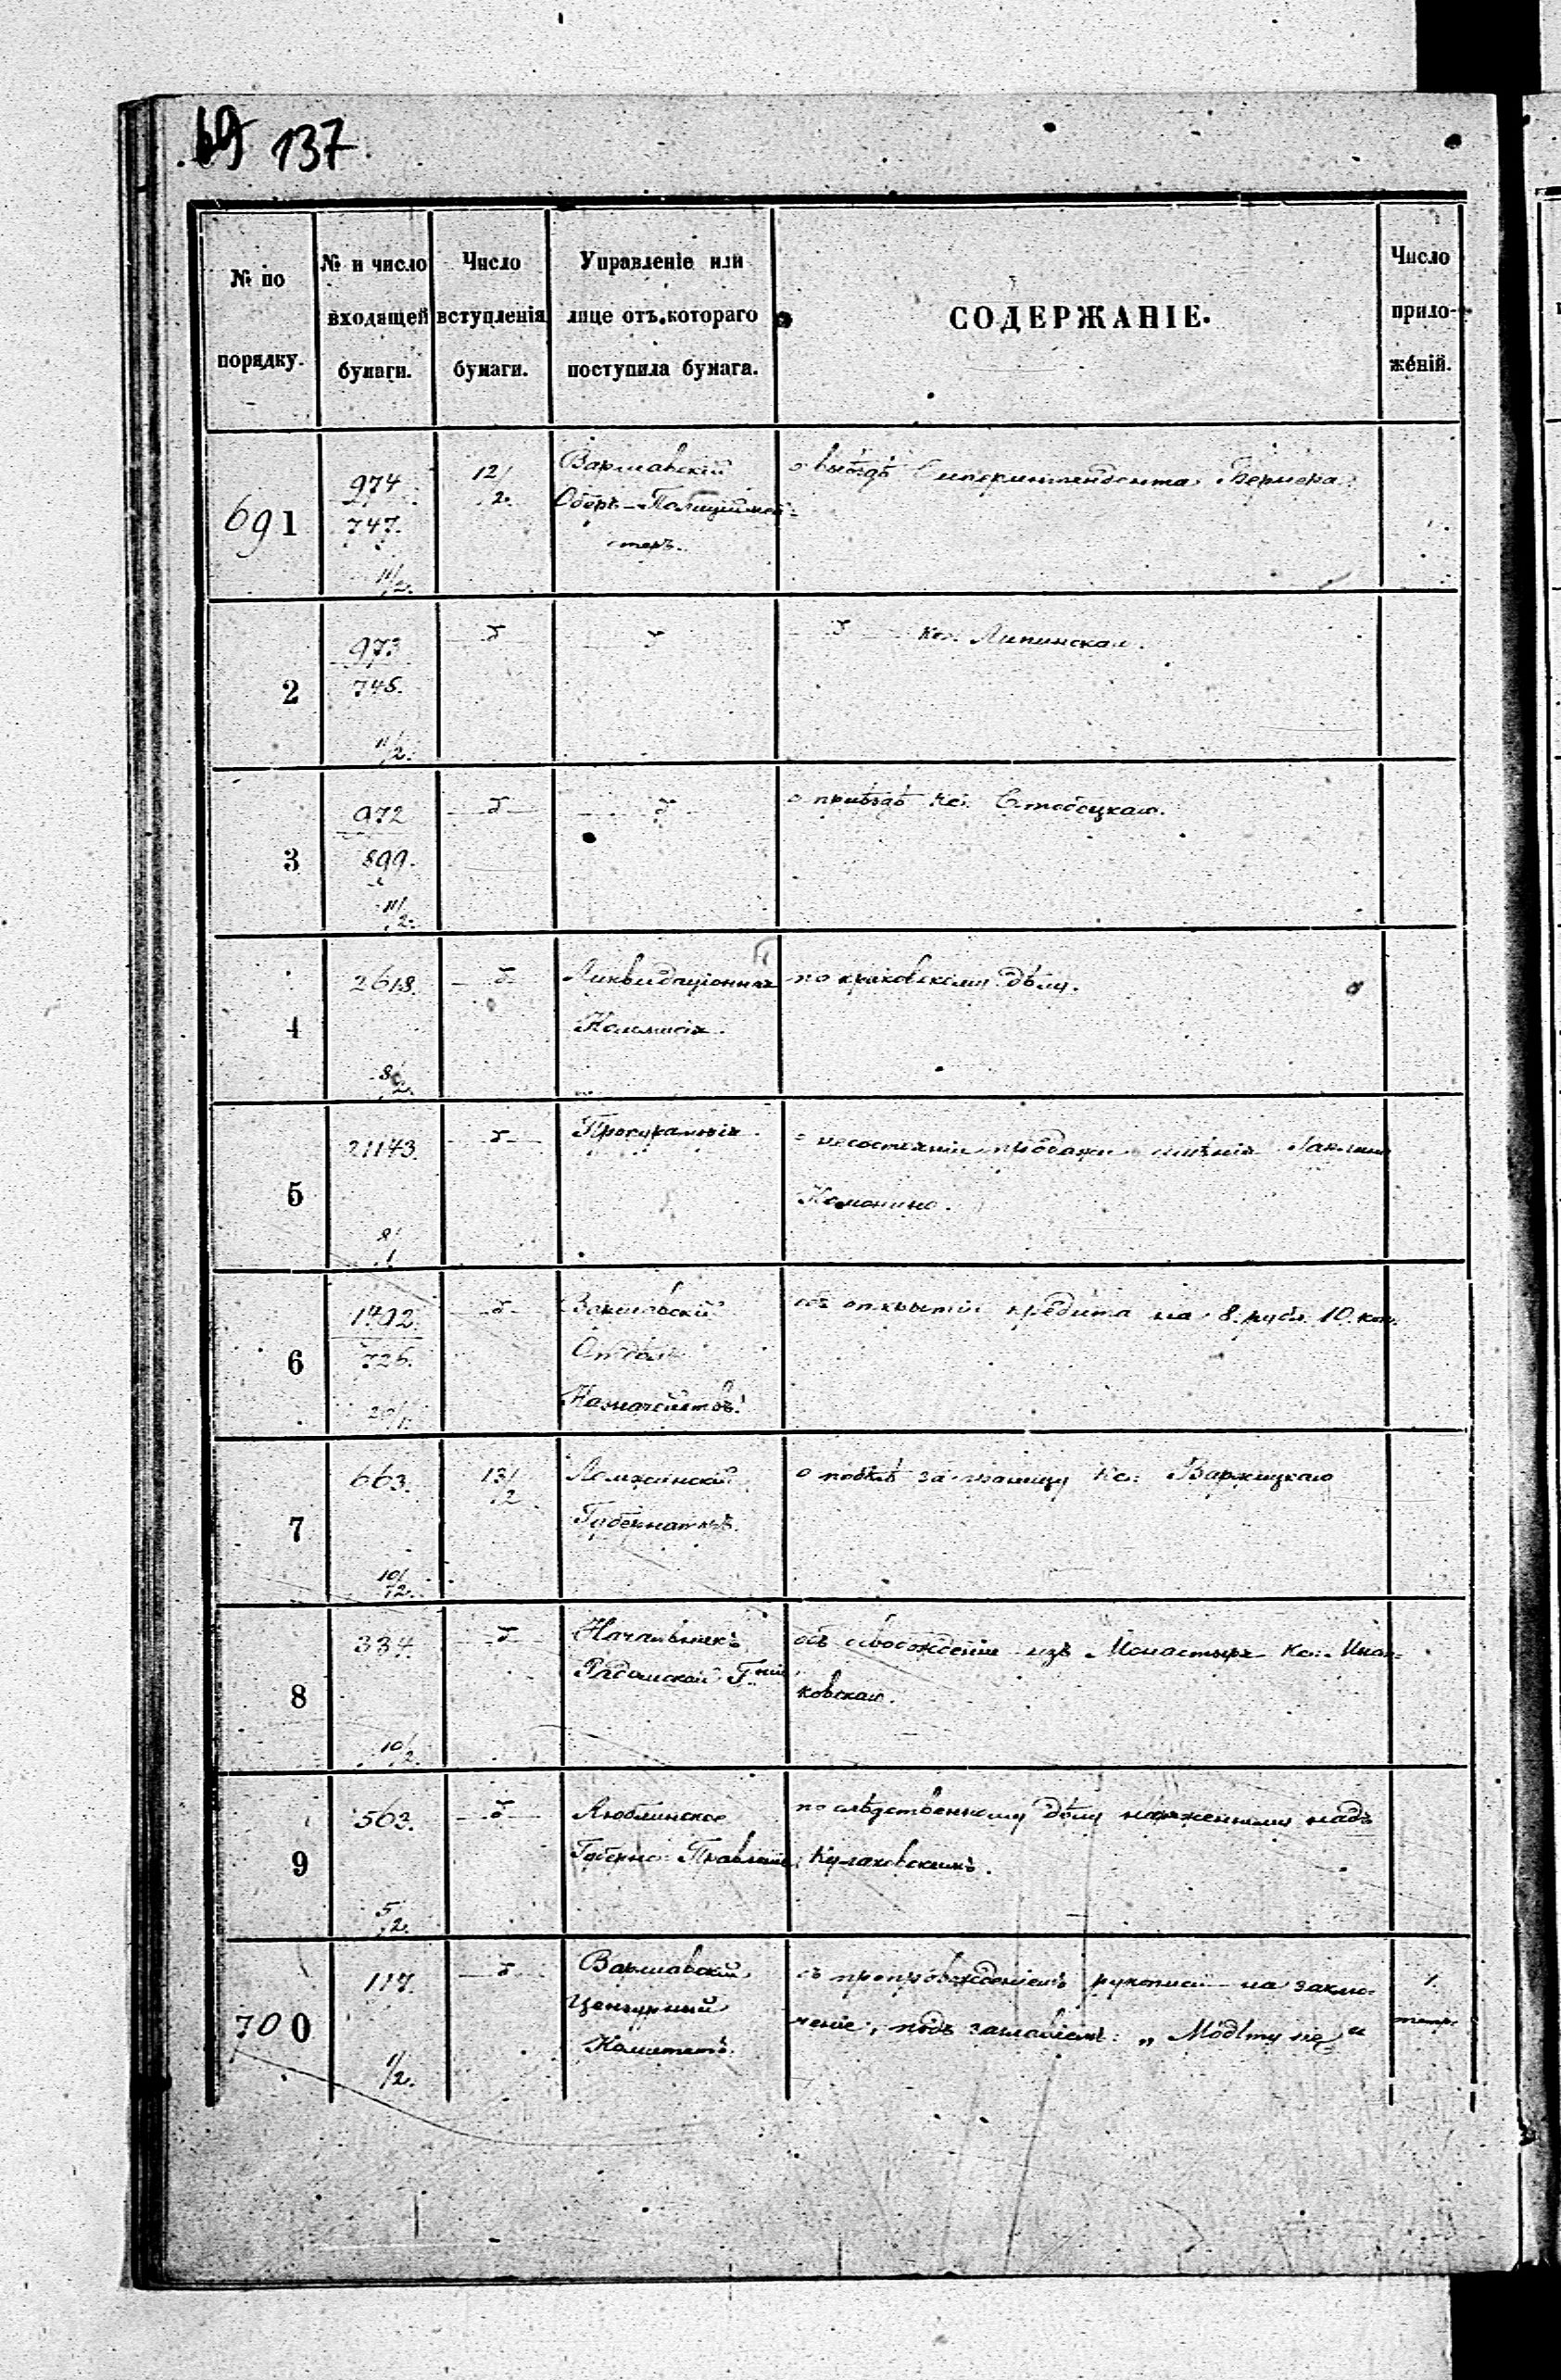 69 137
№ по порядку.
№ и число входящей бумаги.
Число вступленія бумаги.
Управленіе или лице отъ котораго поступила бумага.
СОДЕРЖАНІЕ.
Число приложеній.
691
974
747.
11/2.
12/2.
Варшавскій
Оберъ-Полиціймей-
стеръ.
о выѣздѣ Суперинтендента
2
973
11/2.
Кс. Липинскаго.
3
972
899.
11/2.
о пріѣздѣ Кс.
4
2618.
8/2.
Ликвидаціонная
Коммисія.
по краковскому дѣлу.
5
21143.
8/1
Прокураторія.
о несостояніи продажи имѣнія
6
726.
Варшавскій
Отдѣл.
Казначейства.
объ открытіи кредита на 8. рубл. 10. коп.
7
663.
10/2.
13/2
Ломжинскій
Губернаторъ.
о побѣгѣ за границу Кс.
8
334.
10/2.
Начальникъ
Радомской Г-ніи
объ освобожденіи изъ Монастыря Кс.
ковскаго.
9
563.
5/2.
Люблинское
Губернс. Правленіе
по слѣдственному дѣлу надъ
Кулаковскимъ.
700
117.
1/2.
Варшавскій
Цензурный
Комитетъ.
съ препровожденіемъ рукописи на заклю-
ченіе, подъ заглавіемъ: „Módlmy się“
1.
тетр.